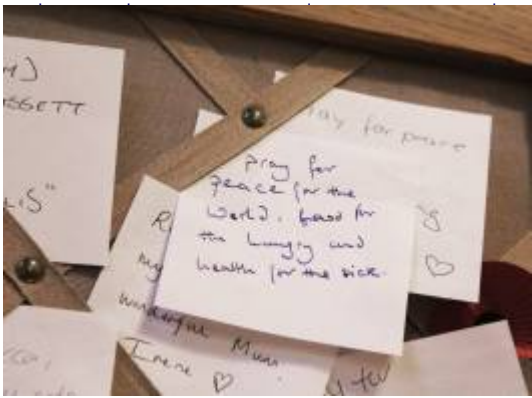 SSETT
"
pray for peace
pray for
peace for the
World. food for
the hungry and
health for the sick.
♡
my
wonderful Mum
Irene ♡